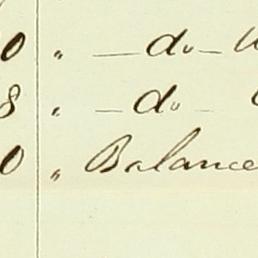 0 " — do — 
8 " — do —
0 " Balance